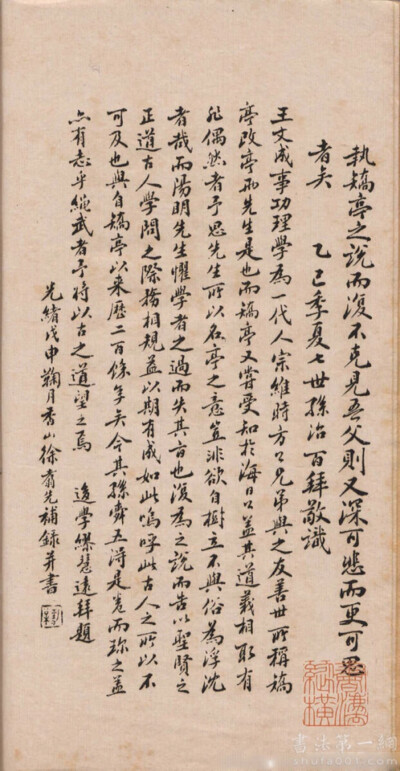 執矯亭之說而復不克見吾父則又深可悲而更可思
者矣 乙巳季夏七世孫治百拜敬識
王文成事功理學為一代人宗維時方公兄弟與之友善世所稱矯
亭改亭兩先生是也而矯亭又嘗受知於海日公蓋其道義相取有
非偶然者予思先生所以名亭之意豈非欲自樹立不與俗為浮沈
者哉而陽明先生懼學者之過而失其旨也復為之說而告以聖賢之
正道古人學問之際務相規益以期有成如此嗚呼此古人之所以不
可及也與自矯亭以來歷二百餘年矣今其孫舜五得是卷而珍之蓋
亦有志乎繩武者予將以古之道望之焉 後學繆慧遠拜題
光緒戊申鞠月香山徐翥先補錄并書
書法第一網
shufa001.com